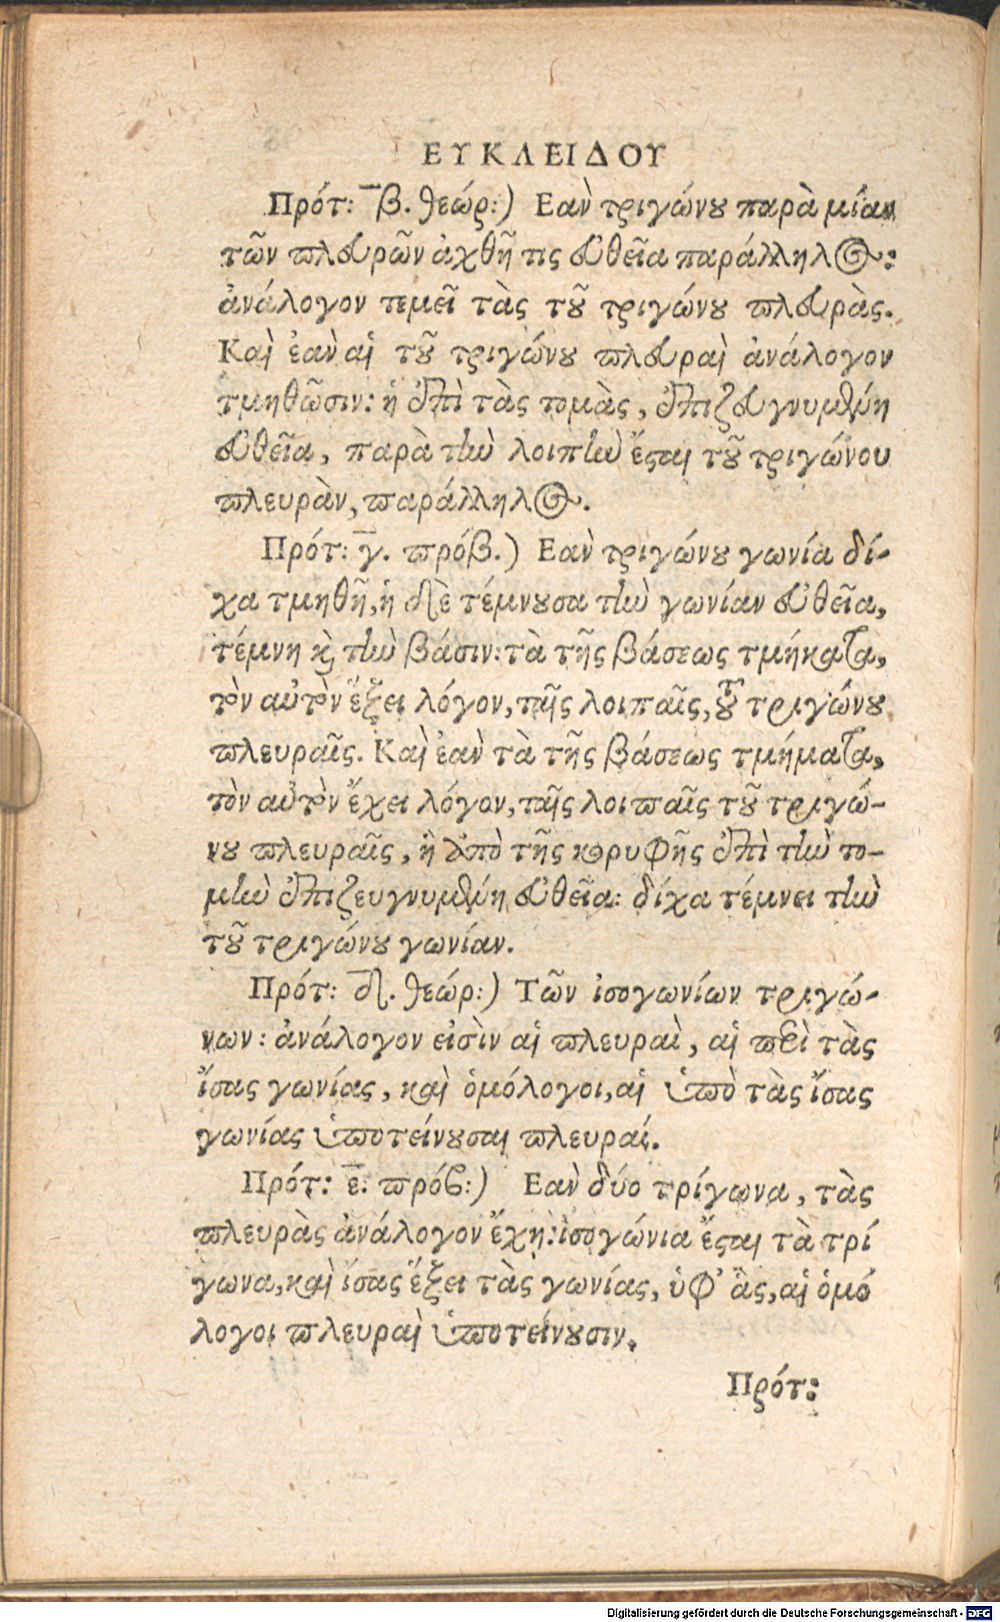 ΕΥΚΛΕΙΔΟΥ
Πρότ: β̅. θεώρ:) Εαν τριγώνου παρὰ μίαν
τῶν πλευρῶν ἀχθῇ τις εὐθεῖα παράλληλος:
ἀνάλογον τεμεῖ τὰς τοῦ τριγώνου πλευρὰς.
Καὶ ἐὰν αἱ τοῦ τριγώνου πλευραὶ ἀνάλογον
τμηθῶσιν: ἡ ἐπὶ τὰς τομὰς, ἐπιζευγνυμένη
εὐθεῖα, παρὰ τὴν λοιπὴν ἔσται τοῦ τριγώνου
πλευρὰν, παράλληλος.
Πρότ: γ̅. πρόβ.) Εαν τριγώνου γωνία δί-
χα τμηθῇ, ἡ δὲ τέμνουσα τὴν γωνίαν εὐθεῖα,
τέμνη καὶ τὴν βάσιν: τὰ τῆς βάσεως τμήματα,
τὸν αὐτὸν ἕξει λόγον, ταῖς λοιπαῖς, τοῦ τριγώνου
πλευραῖς. Καὶ ἐὰν τὰ τῆς βάσεως τμήματα,
τὸν αὐτὸν ἔχει λόγον, ταῖς λοιπαῖς τοῦ τριγώ-
νου πλευραῖς, ἡ ἀπὸ τῆς κορυφῆς ἐπὶ τὴν το-
μὴν ἐπιζευγνυμένη εὐθεῖα: δίχα τέμνει τὴν
τοῦ τριγώνου γωνίαν.
Πρότ: δ̅. θεώρ:) Τῶν ἰσογωνίων τριγώ-
νων: ἀνάλογον εἰσὶν αἱ πλευραὶ, αἱ περὶ τὰς
ἴσας γωνίας, καὶ ὁμόλογοι, αἱ ὑπὸ τὰς ἴσας
γωνίας ὑποτείνουσαι πλευραί.
Πρότ: ε̅. πρόβ:) Εαν δύο τρίγωνα, τὰς
πλευρὰς ἀνάλογον ἔχῃ: ἰσογώνια ἔσται τὰ τρί
γωνα, καὶ ἴσας ἕξει τὰς γωνίας, ὑφ' ἃς, αἱ ὁμό
λογοι πλευραὶ ὑποτείνουσιν.
Πρότ:
Digitalisierung gefördert durch die Deutsche Forschungsgemeinschaft - DFG